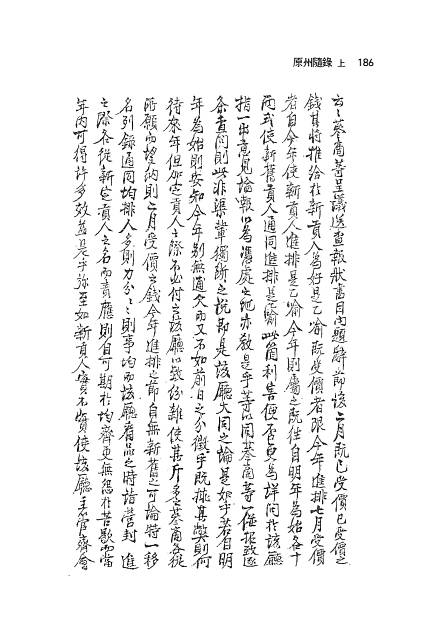 原州隨錄 上 186
云云蔘商等呈議送査報狀書目內題辭節該二月旣已受價已受價之
錢其將推給於新貢人爲好是乙喩旣受價者限今年進排七月受價
者自今年使新貢人進排是乙喩今年則屬之旣往自明年爲始各十
兩式使新舊貢人通同進排是喩此箇利害便否更爲詳問於該廳
指一出意見論報以爲憑處之地亦敎是乎等以同蔘商等一體招致逐
條査問則此非渠輩獨斷之說卽是該廳大同之論是如乎若自明
年爲始則安知今年別無適欠而又不如前日之分徵乎旣排其弊則何
待來年但加定貢人之際不必付之該廳以致紛雜使其斤多蔘商各從
所願而望納則二月受價之錢今年進排之節自無新舊之可論特一移
名列錄通同均排人多則力分力分則事均而該廳看品之時諸營封進
之際各從新定貢人之名而責應則自可期於均齊更無怨於苦歇而當
年內可得許多效益是乎旀至如新貢人實不實使該廳主管齊會